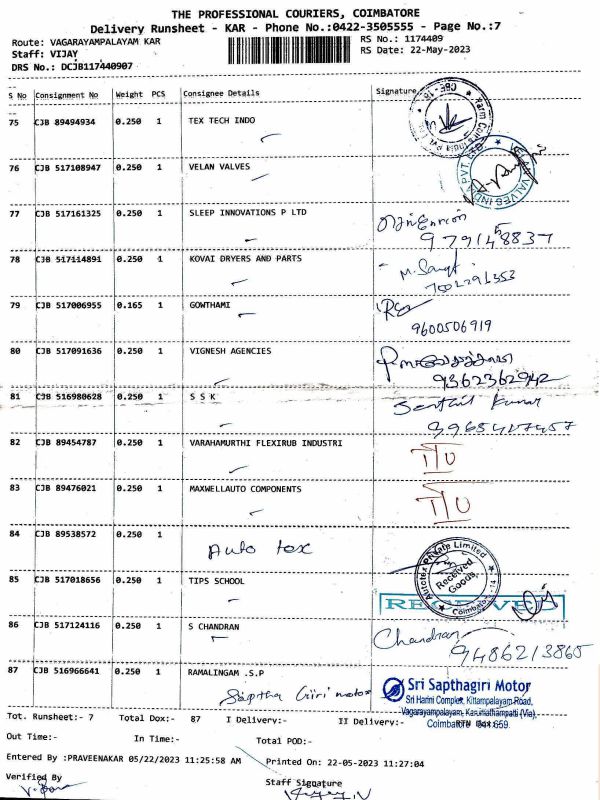 THE PROFESSIONAL COURIERS, COIMBATORE
Delivery Runsheet - KAR - Phone No.:0422-3505555 - Page No.:7
Route: VAGARAYAMPALAYAM KAR
RS No.: 1174409
Staff: VIJAY
RS Date: 22-May-2023
DRS No.: DCJB117440907
S No Consignment No Weight PCS Consignee Details Signature
75 CJB 89494934 0.250 1 TEX TECH INDO
76 CJB 517108947 0.250 1 VELAN VALVES
77 CJB 517161325 0.250 1 SLEEP INNOVATIONS P LTD
78 CJB 517114891 0.250 1 KOVAI DRYERS AND PARTS
79 CJB 517006955 0.165 1 GOWTHAMI
9600506919
80 CJB 517091636 0.250 1 VIGNESH AGENCIES
9362362942
81 CJB 516980628 0.250 1 S S K Senthil Kumar
82 CJB 89454787 0.250 1 VARAHAMURTHI FLEXIRUB INDUSTRI
83 CJB 89476021 0.250 1 MAXWELLAUTO COMPONENTS
84 CJB 89538572 0.250 1 Auto tex
Autotex Private Limited
Received Goods
Coimbatore - 14
85 CJB 517018656 0.250 1 TIPS SCHOOL
RECEIVED
86 CJB 517124116 0.250 1 S CHANDRAN Chandran
9486213865
87 CJB 516966641 0.250 1 RAMALINGAM .S.P
Sri Sapthagiri Motor
Sri Harini Complex, Kittampalayam Road,
Vagarayampalayam, Karumathampatti (Via),
Coimbatore 641 659.
Tot. Runsheet:- 7 Total Dox:- 87 I Delivery:- II Delivery:-
Out Time:- In Time:- Total POD:-
Entered By :PRAVEENAKAR 05/22/2023 11:25:58 AM Printed On: 22-05-2023 11:27:04
Verified By Staff Signature